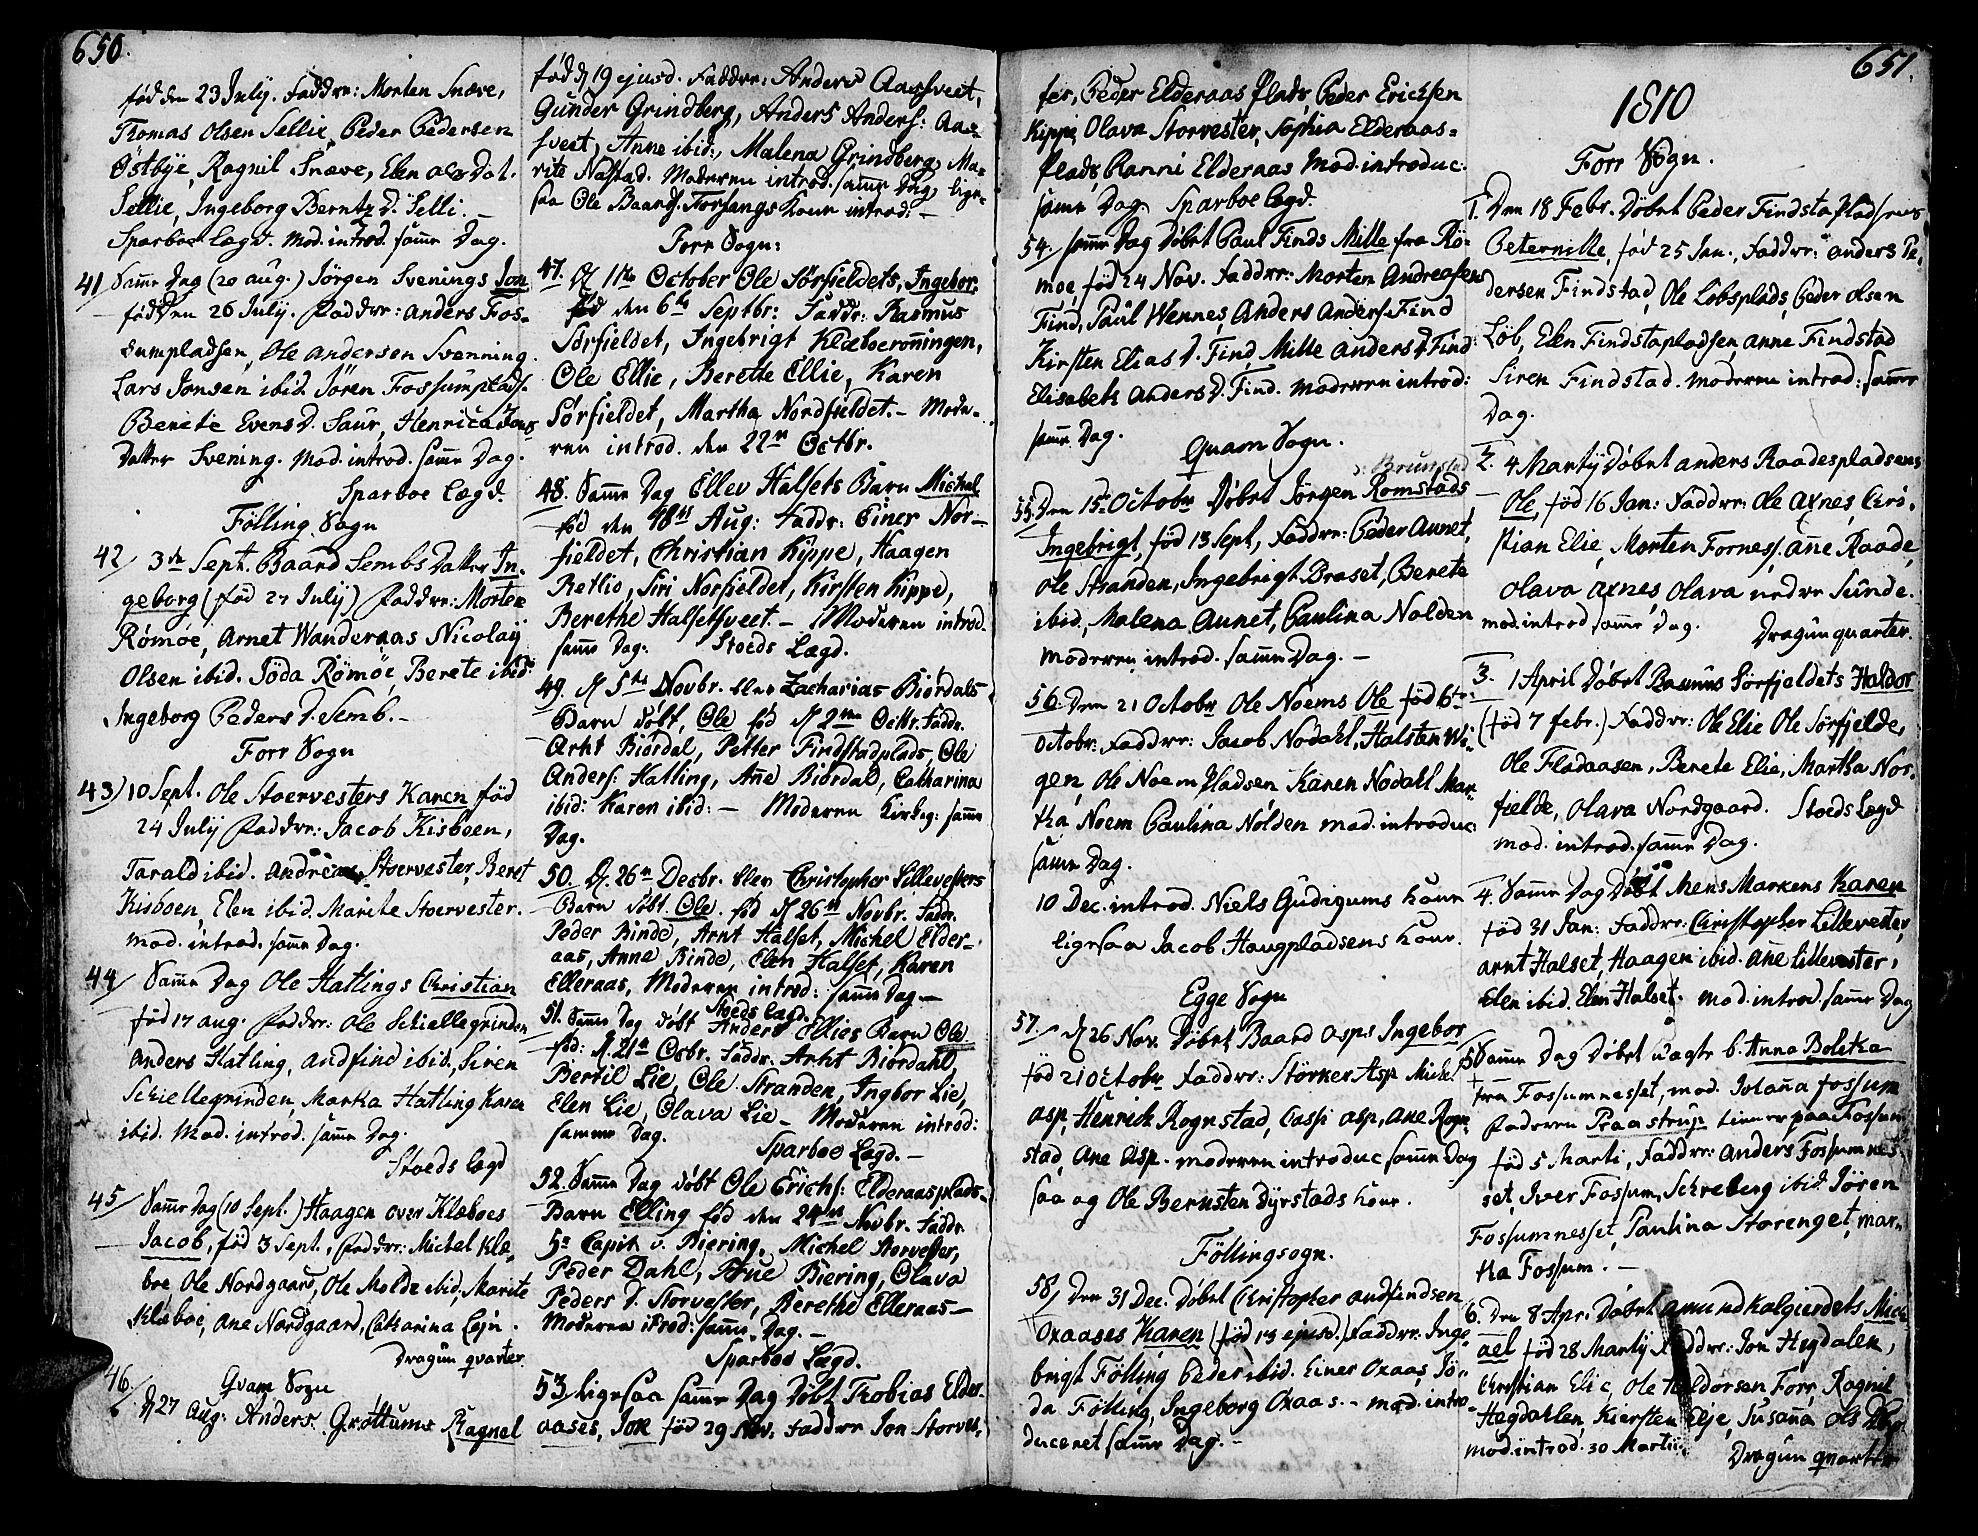 650.
fød den 23 July. Faddre: Morten Snæve,
Thomas Olsen Sellie, Peder Pedersen
Østbye, Ragnil Snæve, Elen Ols Dat.
Sellie, Ingeborg Berntz D. Selli. –
Sparboe Lægd. Mod. introd. samme Dag.
41/ Samme Dag (20 aug.) Jörgen Svenings Jon
fød den 26 July. Faddrer: Anders Fos-
sumpladsen, Ole Andersen Svenning.
Lars Jonsen ibid. Jören Fossumplads.
Berete Evens D. Saur, Henrica Jons
Datter Svening. Mod. introd. samme Dag.
Sparboe Lægd.
Fölling Sogn
42/ 3de Sept. Baard Sembs Datter In-
geborg (fød 27 July) Faddrer: Morten
Römoe, Arnet Wanderaas Nicolay
Olsen ibid. Jöda Römöe, Berete ibid.
Ingeborg Peders D. Semb. –
Forr Sogn
43/ 10 Sept. Ole Stoervesters Karen fød
24 July Faddrer: Jacob Kisboen,
Tarald ibid. Andreas Stoervester, Beret
Kisboen, Elen ibid. Marite Stoervester.
mod. introd. samme Dag.
44/ Samme Dag Ole Hatlings Christian
fød 17 aug. Faddrer: Ole Schiellegrinden
Anders Hatling, Andfind ibid., Siren
Schiellegrinden, Marta Hatling Karen
ibid. Mod. introd. samme Dag.
Stoeds Lægd
45/ Samme Dag (10 Sept.) Haagen over Klæboes
Jacob, fød 3 Sept., Faddrer: Michel Klæ-
boe, Ole Nordgaard, Ole Molde ibid, Marite
Klæboe, Ane Nordgaard, Catharina Lejn.
Dragun qvarter.
Qvam Sogn
46/ d 27 Aug: Anders Gröttums Ragnel
fød d 19 ejusd. Faddrer: Anders Aassveet,
Gunder Grindberg, Anders Anders: Aa-
sveet, Anne ibid:, Malena Grindberg, Ma-
rite Nastad. Moderen introd. samme Dag, lige-
saa Ole Baards. Forsangs Kone introd: –
Forr Sogn:
47. d 1te October Ole Sörfieldets, Ingebor
fød den 6te Septbr: Faddr: Rasmus
Sörfieldet, Ingebrigt Klæboerönningen,
Ole Ellie, Berette Ellie, Karen
Sörfieldet, Martha Nordfieldet. – Mode-
ren introd. den 22n Octbr.
48. Samme Dag Ellev Halsets Barn Michel
fød den 18ts Aug: Faddr: Einer Nor-
fieldet, Christian Kippe, Haagen
Retlio, Siri Norfieldet, Kirsten Kippe,
Berethe Halsetsveet. – Moderen introd.
samme Dag. Stoeds Lægd.
49. d 5te Novbr. blev Zacharias Biördals
Barn döbt, Ole fød d 2den Octbr. Faddr.
Arnt Biördal, Petter Findstadplads, Ole
Anders: Hatling, Ane Biördal, Catharina
ibid: Karen ibid: – Moderen Kirkeg: samme
Dag.
50. d. 26n Decbr. blev Christopher Lillevesters
Barn döbt. Ole. fød d 26n Novbr. Faddr.
Peder Binde, Arnt Halset, Michel Elder-
aas, Anne Binde, Elen Halset, Karen
Elleraas, Moderen introd: samme Dag. –
Stoeds Lægd.
51. Samme Dag döbt Anders Ellies Barn Ole.
fød: d. 21n Octbr. Faddr. Arnt Biördahl,
Bertil Lie, Ole Stranden, Ingbor Lie,
Elen Lie, Olava Lie – Moderen introd:
samme Dag.
Sparboe Lægd. –
52. Samme Dag döbt Ole Erichs: Elderaasplads-
Barn Elling fød den 24n Novbr. Faddr.
Sr Capit v. Biering, Michel Storvester,
Peder Dahl, Frue Biering, Olava
Peders D. Storvester, Berethe Elleraas –
Moderen itrod: samme Dag. –
Sparboe Lægd.
53/ ligesaa samme Dag Döbt Tobias Elder-
aases, Jon fød 29 Nov. Faddrer Jon Storves-
ter, Peder Elderaas Plads, Peder Erichsen
Kippe, Olava Storvester, Sophia Elderaas-
plads, Ranni Elderaas Mod. introduc.
samme Dag. Sparboe Lægd.
54/ samme Dag Döbt Paul Finds Mille fra Rö-
moe, fød 24 Nov. Faddrer: Morten Andreasen
Find, Paul Wennes, Anders Anders. Find
Kirsten Elias D. Find, Mille Anders D. Find
Elisabeth Anders D. Find. Moderen introd:
samme Dag.
Quam Sogn.
: Brunstad
55. Den 15 October Döbt Jörgen Romstads
Ingebrigt, fød 13 Sept, Faddrer: Peder Aunet,
Ole Stranden, Ingebrigt Braset, Berete
ibid, Malena Aunet, Paulina Nolden
Moderen introd. samme Dag. –
56. Den 21 October Ole Noems Ole fød 6te
Octobr. Faddrer: Jacob Nodahl, Halsten Wi-
gen, Ole Noem Pladsen Karen Nodahl Mar-
tha Noem Paulina Nolden mod. introduc.
samme Dag.
10 Dec. introd. Niels Gudigums Kone
ligesaa Jacob Haugpladsens Kone.
Egge Sogn
57. d 26 Nov. Döbt Baard Asps Ingebor
fød 21 October Faddrer: Störker Asp Michel
Asp, Henrich Rognstad, Caspi Asp, Ane Rogn-
stad, Ane Asp. moderen introduc samme Dag
saa og Ole Bernsten Dyrstads Kone.
Föllingsogn.
58/ Den 31 Dec. Döbt Christopher Andfindsen
Oxaases Karen (fød 13 ejusd.) Faddrer. Inge-
brigt Fölling Peder ibid. Einer Oxaas, Jö-
da Fölling, Ingeborg Oxaas. – mod. intro-
duceret samme Dag. –
651.
1810
Forr Sogn.
1. Den 18 Febr. Döbt Peder Findsta Pladsens
Peternille, fød 25 Jan., Faddrer: Anders Pe-
dersen Findstad, Ole Löbsplads, Peder Olsen
Löb, Elen Findstapladsen, Anne Findstad
Siren Findstad. Moderen introd: samme
Dag.
2. 4 Marty Döbt Anders Raadespladsens
Ole, fød 16 Jan: Faddrer: Ole Axnes, Cri-
stian Elie, Morten Forness, Ane Raade,
Olava Axnes, Olava nedre Sunde.
mod. introd. samme Dag. Dragunquarter.
3. 1 April Döbt Rasmus Sörfjeldets Haldor
(fød 7 febr.) Faddrer: Ole Elie Ole Sörfjelde,
Ole Fladaasen, Berete Elie, Martha Nor-
fjelde, Olava Nordgaard. Stoeds Lægd
mod. introd. samme Dag.
4. Samme Dag Döbt Mens Markens Karen
fød 31 Jan: Faddrer: Christopher Lillevester,
Arnt Halset, Haagen ibid. Ane Lillevester,
Elen ibid. Elen Halset. mod. introd. samme Dag
5. Samme Dag Döbt uægte b. Anna Boletta
fra Fossumnesset, mod. Johana Fossum
Faderen Praastrup tiener paa Fossum
fød 5 Marti, Faddrer: Anders Fossumnes-
set, Iver Fossum, Schreberg ibid. Jören
Fossumnesset, Paulina Storenget, Mar-
tha Fossum. –
6. Den 8 Apr. Döbt Amund Kalgierdets Mich-
ael fød 28 Marty Faddrer: Jon Hegdalen,
Christian Elie, Ole Haldorsen Forr, Ragnil
Hegdahlen, Kiersten Elje, Susana Ols
mod. introd. 30 Martii.
Dragun qvarter